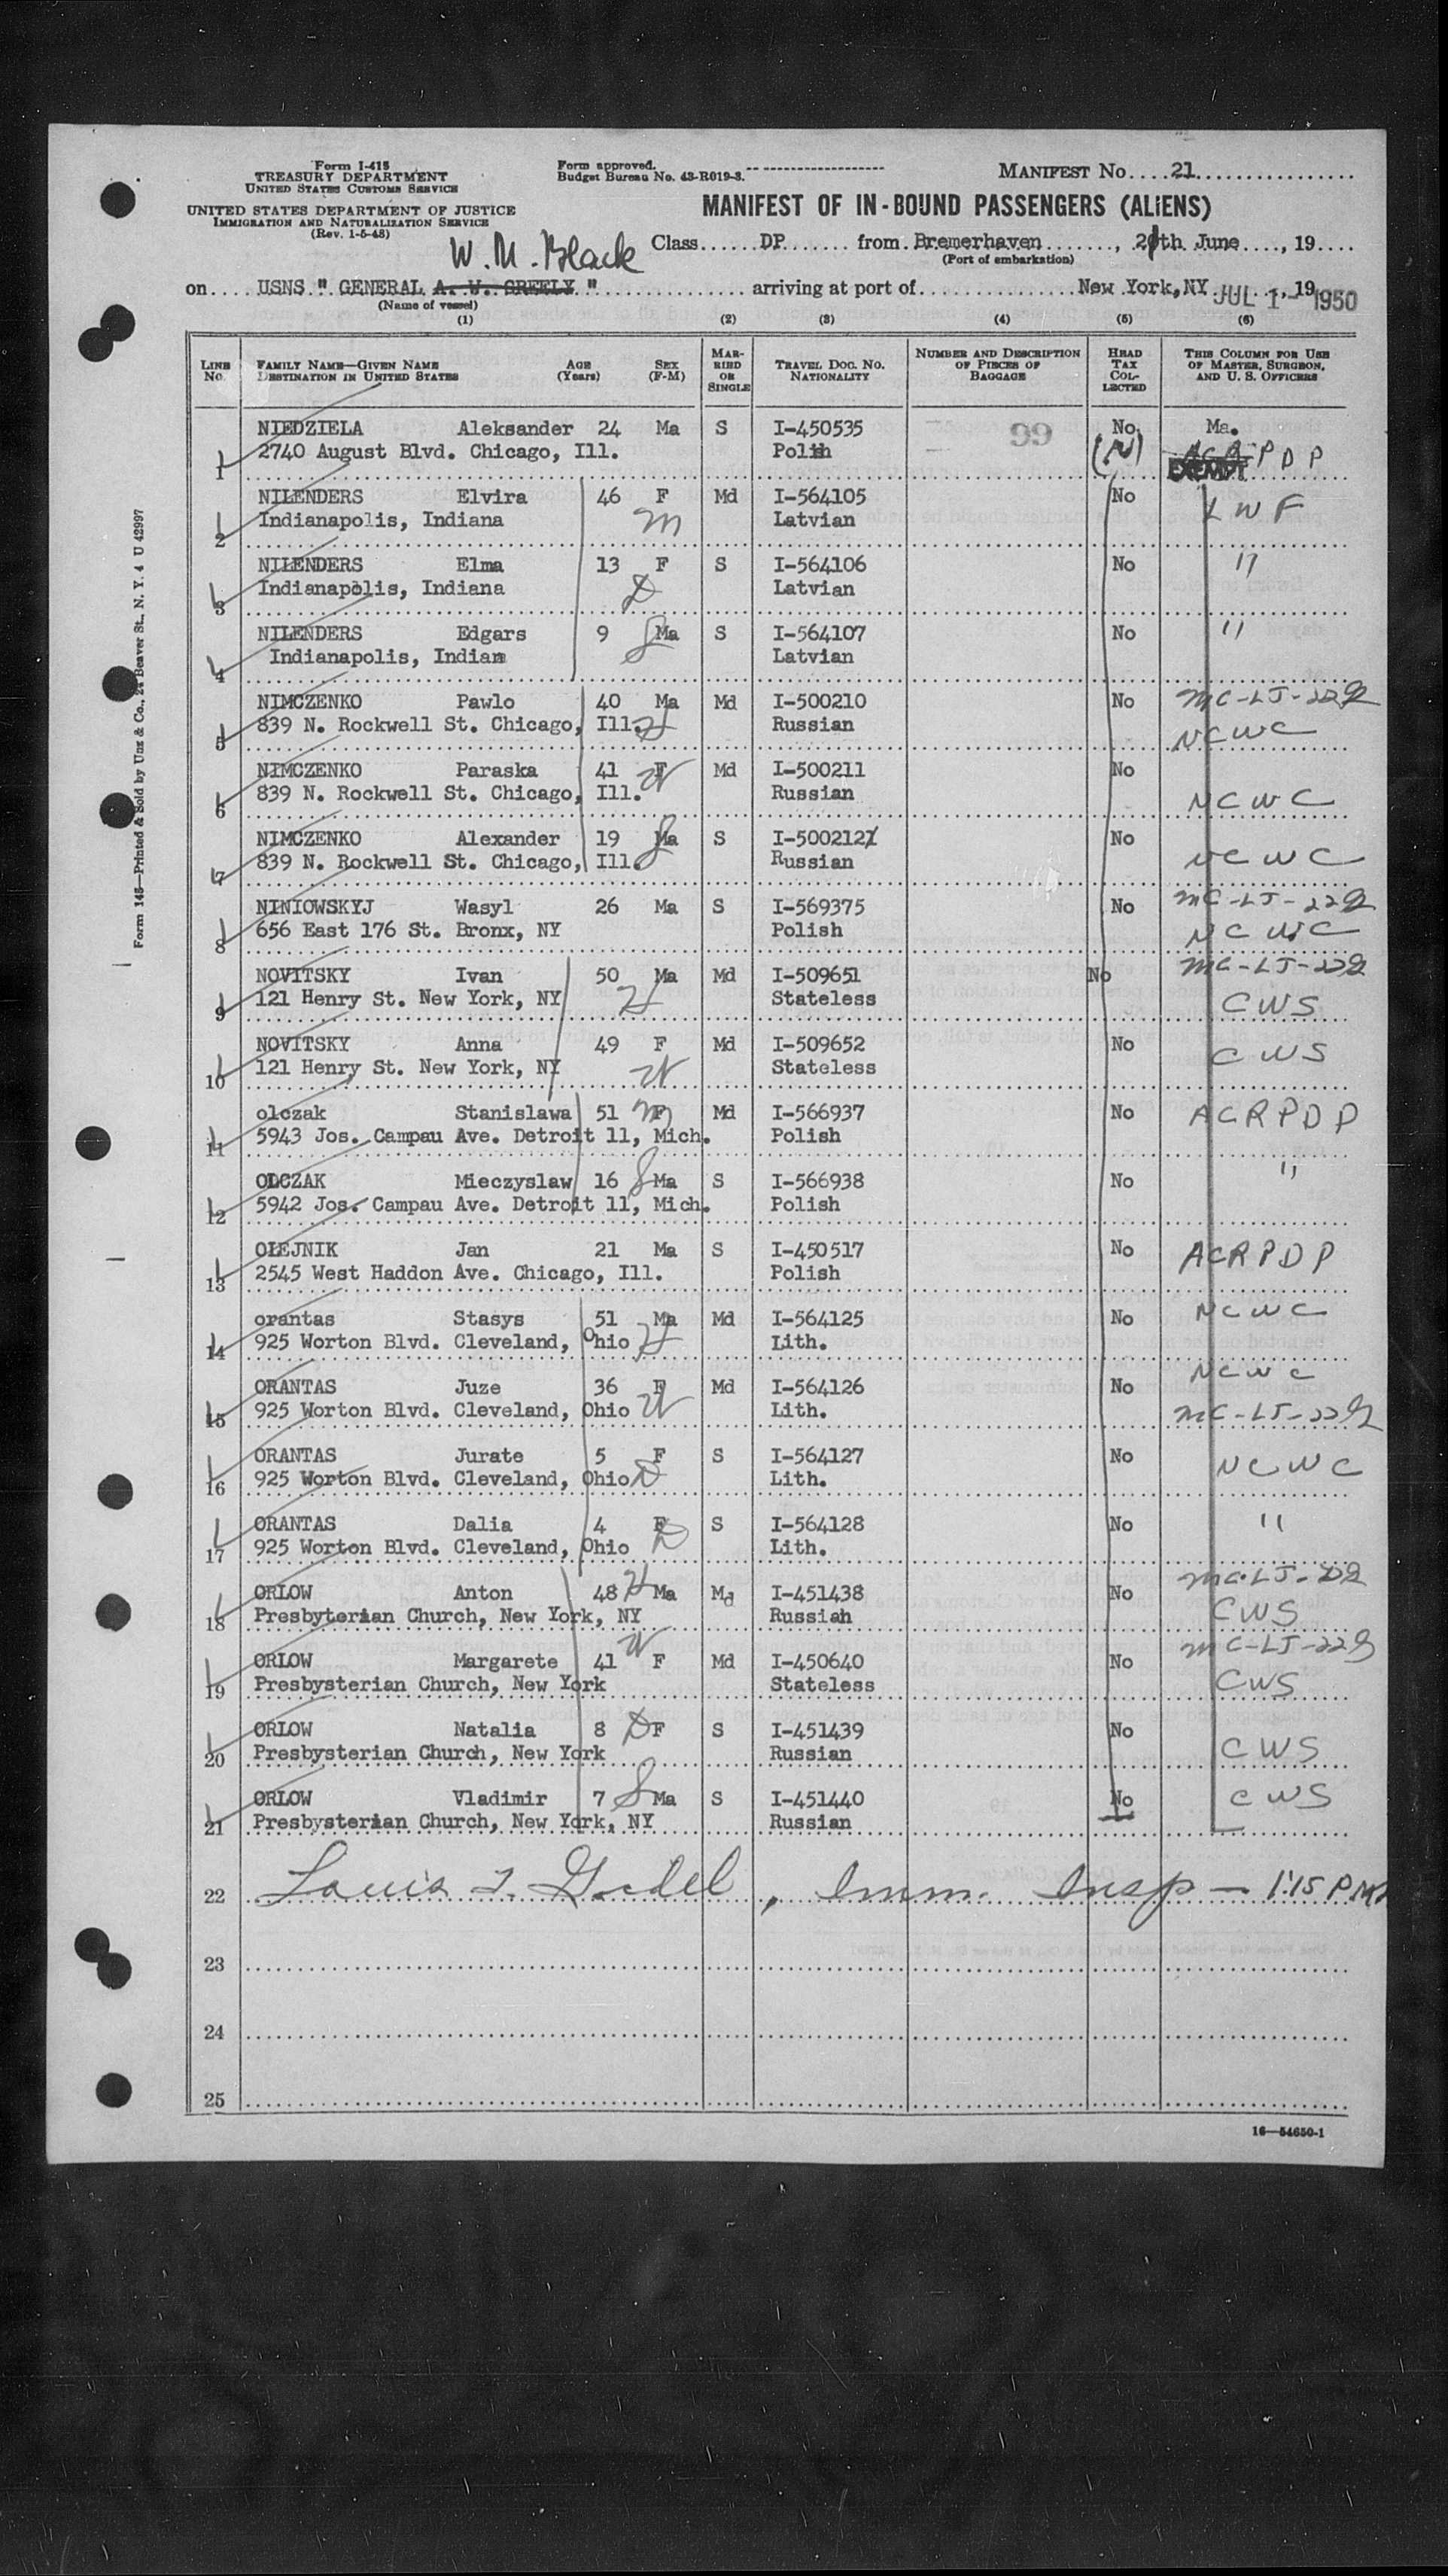 Form I-415
TREASURY DEPARTMENT
UNITED STATES CUSTOMS SERVICE
UNITED STATES DEPARTMENT OF JUSTICE
IMMIGRATION AND NATURALIZATION SERVICE
(Rev. 1-5-48)
Form approved.
Budget Bureau No. 43-R019-3.
MANIFEST No. 21
MANIFEST OF IN-BOUND PASSENGERS (ALIENS)
W. M. Black
Class DP from Bremerhaven, th June, 19
(Port of embarkation)
on USNS " GENERAL A. W. GREELY " arriving at port of New York, NY JUL 1 - 1950, 19
(Name of vessel)
(1) (2) (3) (4) (5) (6)
LINE No. FAMILY NAME—GIVEN NAME DESTINATION IN UNITED STATES AGE (Years) SEX (F-M) MARRIED OR SINGLE TRAVEL DOC. NO. NATIONALITY NUMBER AND DESCRIPTION OF PIECES OF BAGGAGE HEAD TAX COLLECTED THIS COLUMN FOR USE OF MASTER, SURGEON, AND U. S. OFFICERS
NIEDZIELA Aleksander 24 Ma S I-450535 99 No Ma.
1 2740 August Blvd. Chicago, Ill. Polish (N) EXEMPT ACRPDP
NILENDERS Elvira 46 F Md I-564105 No LWF
2 Indianapolis, Indiana m Latvian
NILENDERS Elma 13 F S I-564106 No "
3 Indianapolis, Indiana D Latvian
NILENDERS Edgars 9 S Ma S I-564107 No "
4 Indianapolis, Indian Latvian
NIMCZENKO Pawlo 40 Ma Md I-500210 No MC-LJ-229
5 839 N. Rockwell St. Chicago, Ill. H Russian NCWC
NIMCZENKO Paraska 41 F W Md I-500211 No
6 839 N. Rockwell St. Chicago, Ill. Russian NCWC
NIMCZENKO Alexander 19 Ma S S I-500212 No
7 839 N. Rockwell St. Chicago, Ill. Russian NCWC
NINIOWSKYJ Wasyl 26 Ma S I-569375 No MC-LJ-229
8 656 East 176 St. Bronx, NY Polish NCWC
NOVITSKY Ivan 50 Ma Md I-509651 No MC-LJ-229
9 121 Henry St. New York, NY H Stateless CWS
NOVITSKY Anna 49 F Md I-509652 No CWS
10 121 Henry St. New York, NY W Stateless
olczak Stanislawa 51 m F Md I-566937 No ACRPDP
11 5943 Jos. Campau Ave. Detroit 11, Mich. Polish
OLCZAK Mieczyslaw 16 S Ma S I-566938 No "
12 5942 Jos. Campau Ave. Detroit 11, Mich. Polish
OLEJNIK Jan 21 Ma S I-450517 No ACRPDP
13 2545 West Haddon Ave. Chicago, Ill. Polish
orantas Stasys 51 Ma Md I-564125 No NCWC
14 925 Worton Blvd. Cleveland, Ohio H Lith.
ORANTAS Juze 36 F Md I-564126 No NCWC
15 925 Worton Blvd. Cleveland, Ohio W Lith. MC-LJ-229
ORANTAS Jurate 5 F S I-564127 No NCWC
16 925 Worton Blvd. Cleveland, Ohio D Lith.
ORANTAS Dalia 4 F S I-564128 No "
17 925 Worton Blvd. Cleveland, Ohio D Lith.
ORLOW Anton 48 H Ma Md I-451438 No MC-LJ-229
18 Presbyterian Church, New York, NY Russiah CWS
ORLOW Margarete 41 W F Md I-450640 No MC-LJ-229
19 Presbysterian Church, New York Stateless CWS
ORLOW Natalia 8 D F S I-451439 No
20 Presbysterian Church, New York Russian CWS
ORLOW Vladimir 7 S Ma S I-451440 No CWS
21 Presbysterian Church, New York, NY Russian
22 Louis Imm. Insp — 1:15 PM
23
24
25
16—54650-1
Form 145—Printed & Sold by Unz & Co., 24 Beaver St., N. Y. 4 U 42997